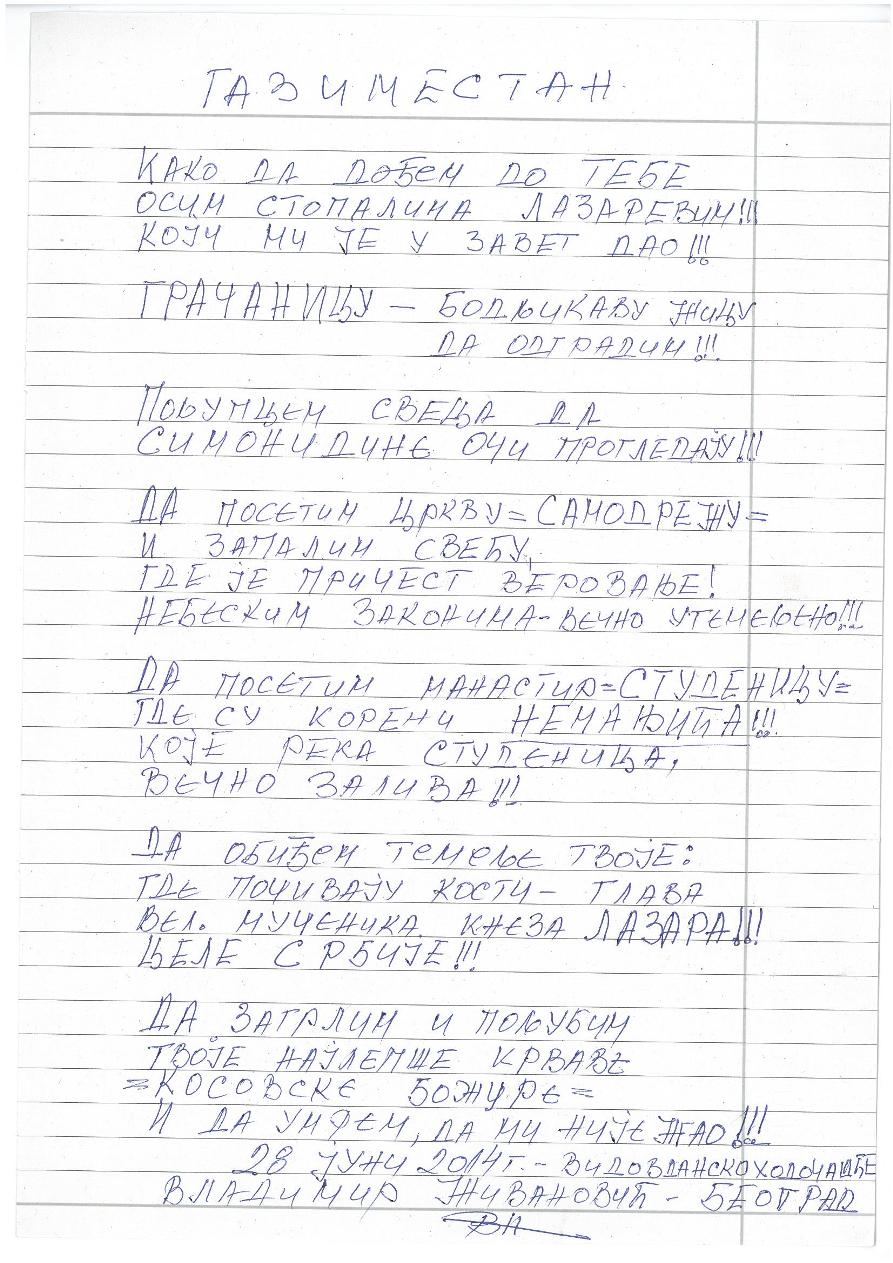 ГАЗИМЕСТАН
КАКО ДА ДОЂЕМ ДО ТЕБЕ
ОСИМ СТОПАЛИМА ЛАЗАРЕВИМ!!!
КОЈИ МИ ЈЕ У ЗАВЕТ ДАО!!!
ГРАЧАНИЦУ – БОДЉИКАВУ ЖИЦУ
ДА ОДГРАДИМ!!!
ПОЉУПЦЕМ СВЕЦА ДА
СИМОНИДИНЕ ОЧИ ПРОГЛЕДАЈУ!!!
ДА ПОСЕТИМ ЦРКВУ = САМОДРЕЖУ =
И ЗАПАЛИМ СВЕЋУ,
ГДЕ ЈЕ ПРИЧЕСТ ВЕРОВАЊЕ!
НЕБЕСКИМ ЗАКОНИМА - ВЕЧНО УТЕМЕЉЕНО!!!
ДА ПОСЕТИМ МАНАСТИР = СТУДЕНИЦУ =
ГДЕ СУ КОРЕНИ НЕМАЊИЋА!!!
КОЈЕ РЕКА СТУДЕНИЦА,
ВЕЧНО ЗАЛИВА!!!
ДА ОБИЂЕМ ТЕМЕЉЕ ТВОЈЕ:
ГДЕ ПОЧИВАЈУ КОСТИ – ГЛАВА
ВЕЛ. МУЧЕНИКА КНЕЗА ЛАЗАРА!!!
ЦЕЛЕ СРБИЈЕ!!!
ДА ЗАГРЛИМ И ПОЉУБИМ
ТВОЈЕ НАЈЛЕПШЕ КРВАВЕ
= КОСОВСКЕ БОЖУРЕ =
И ДА УМРЕМ, ДА МИ НИЈЕ ЖАО!!!
28 ЈУНИ 2014 Г. - ВИДОВДАНСКО ХОДОЧАШЋЕ
ВЛАДИМИР ЖИВАНОВИЋ - БЕОГРАД